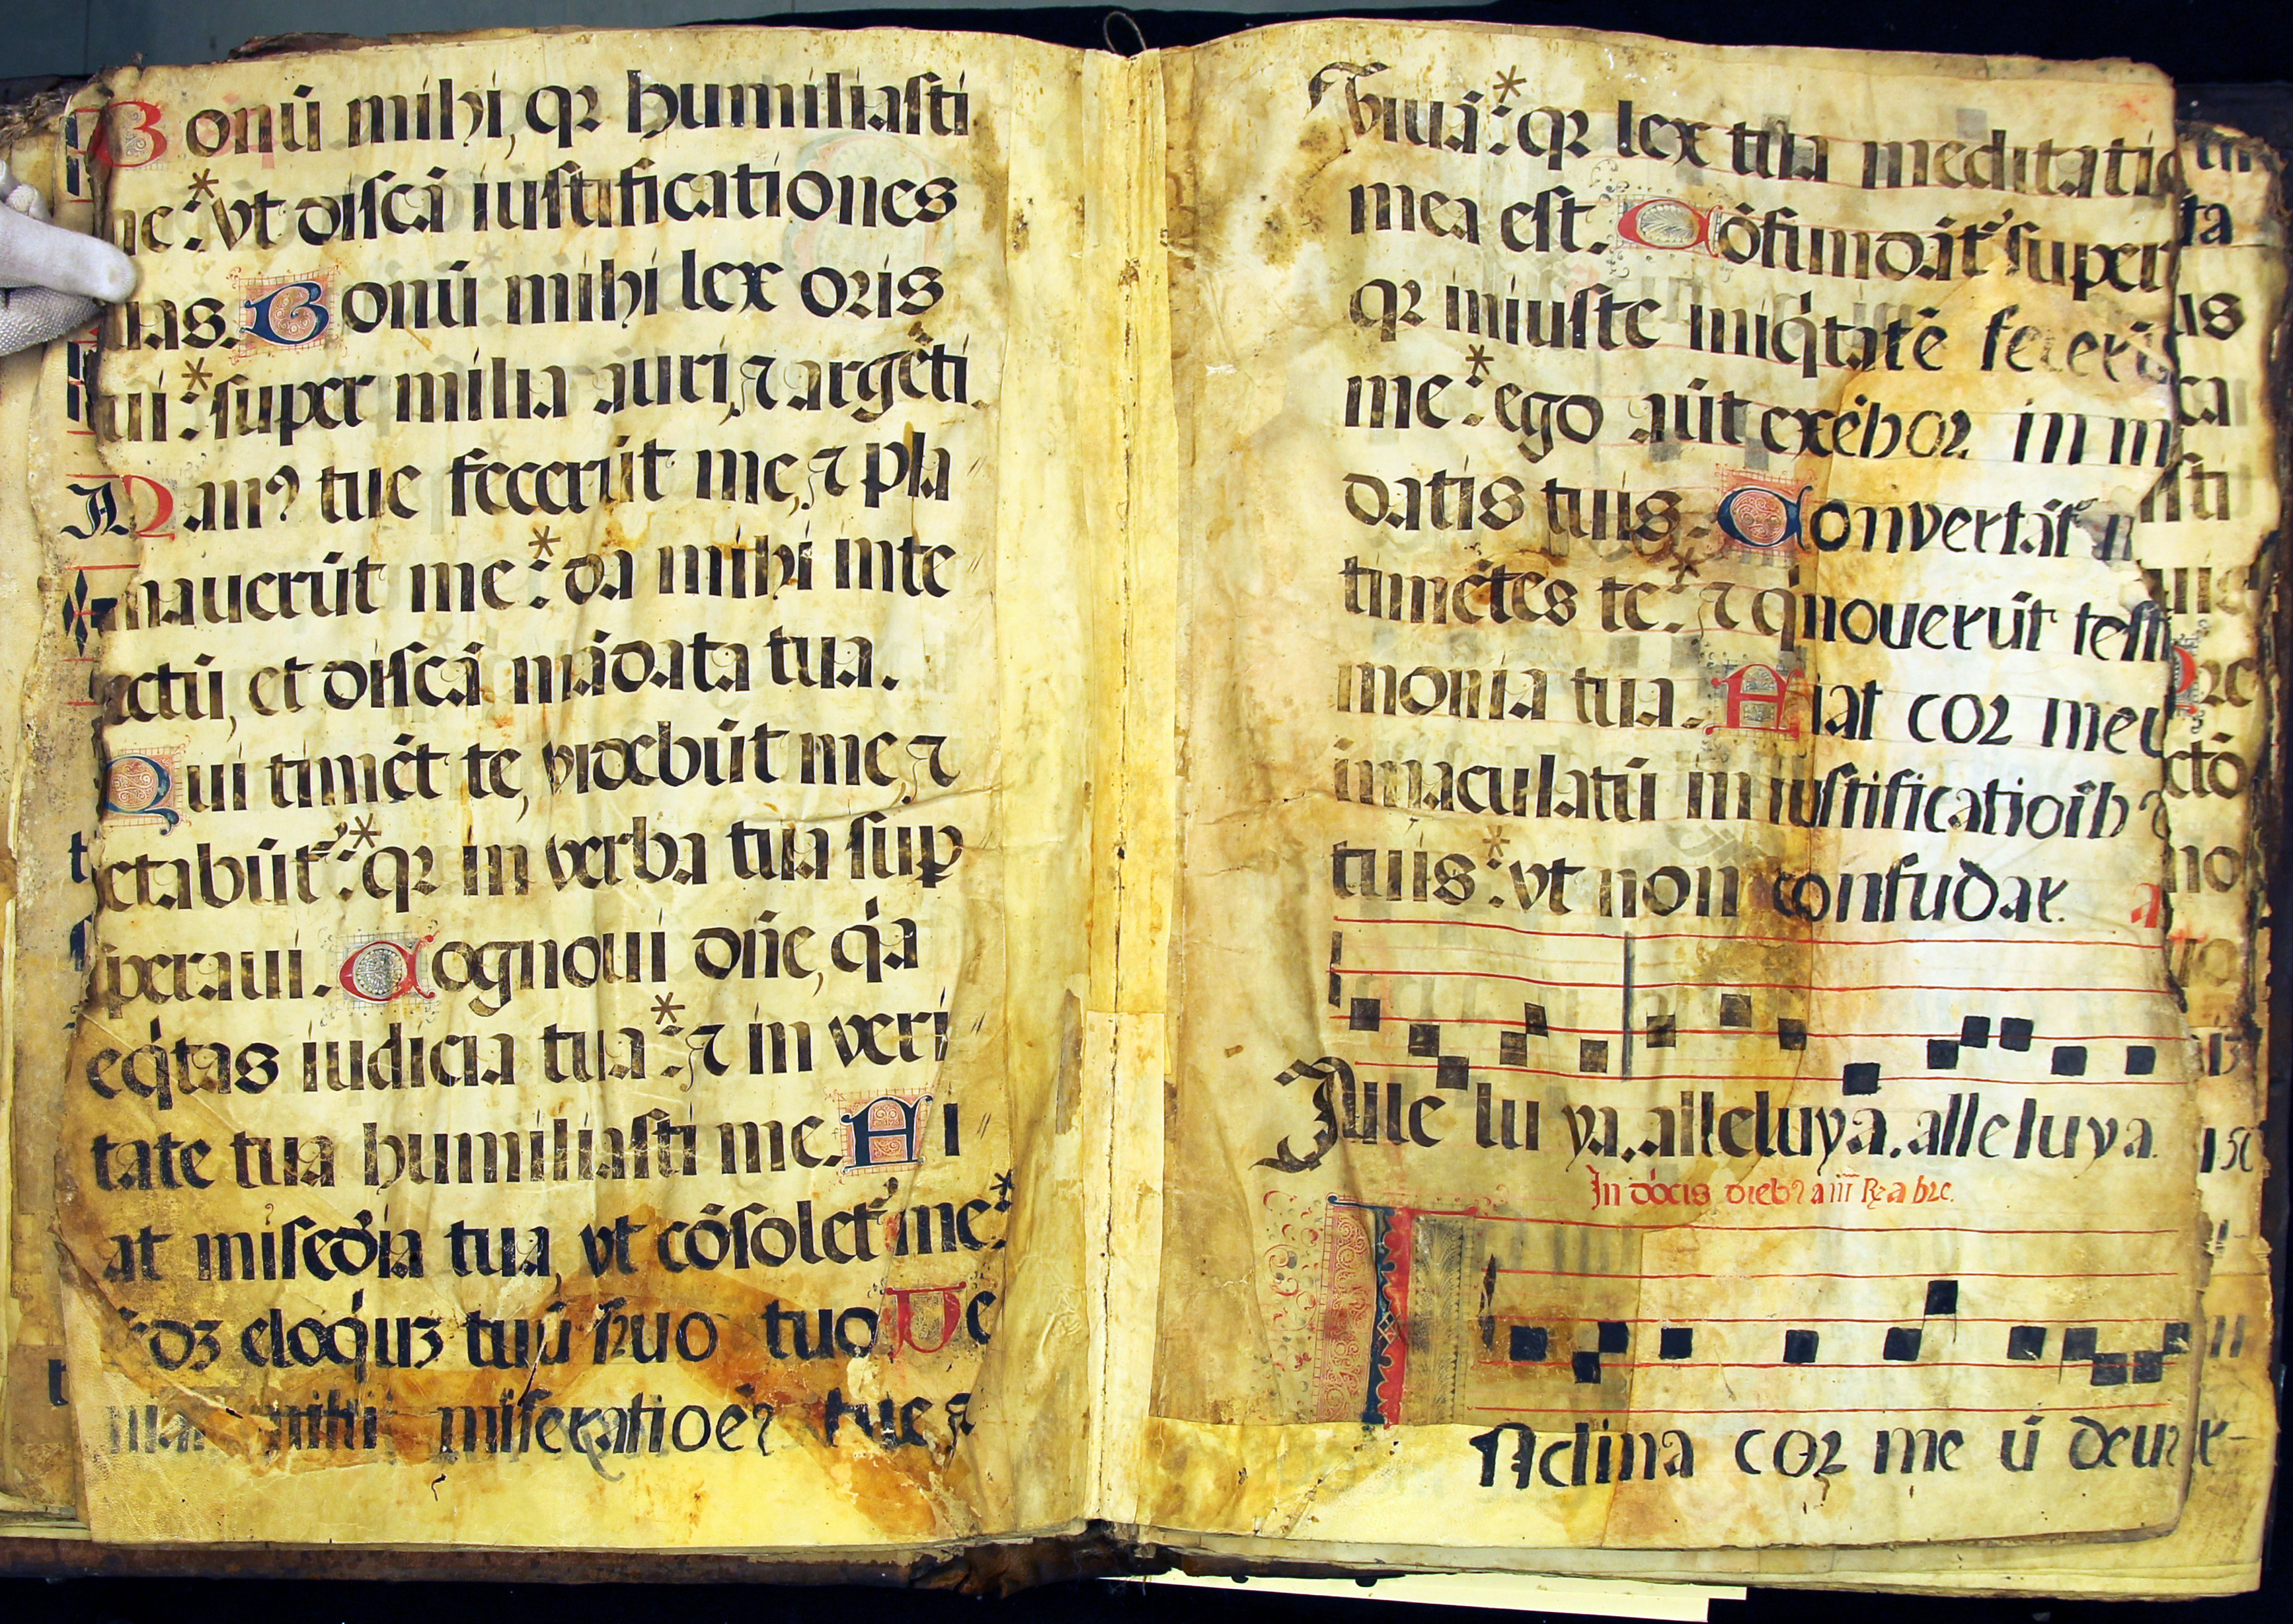 Bonū mihi, qꝛ humiliasti
me: * vt discā iustificationes
tuas. Bonū mihi lex oris
tui: * super milia auri, ⁊ argēti.
Manꝰ tue fecerūt me, ⁊ pla
smauerūt me: * da mihi inte
llectū, et discā mādata tua.
Qui timēt te, videbūt me, ⁊
letabūt᷑: * qꝛ in verba tua sup
speraui. Cognoui dn̄e, qa
eqtas iudicia tua: * ⁊ in veri
tate tua humiliasti me. Fi
at misedia tua, vt cōsolet᷑ me: *
ꝫ eloqiuꝫ tuū suo tuo Ve
mihi miseratioēs tue ⁊
viuā: * qꝛ lex tua meditatio
mea est. Cōfundāt᷑ super
qꝛ iniuste iniqtatē fecerū
me: * ego aūt exēbor in mā
datis tuis. Convertāt᷑ m
timētes te: * ⁊ q nouerūt testi
monia tua. Fiat cor meū
imaculatū in iustificatioīb
tuis: * vt non confudar. a
Alle lu ya. alleluya. alleluya.
In dōcis diebꝰ a iii Re a bre.
INclina cor me ū deus